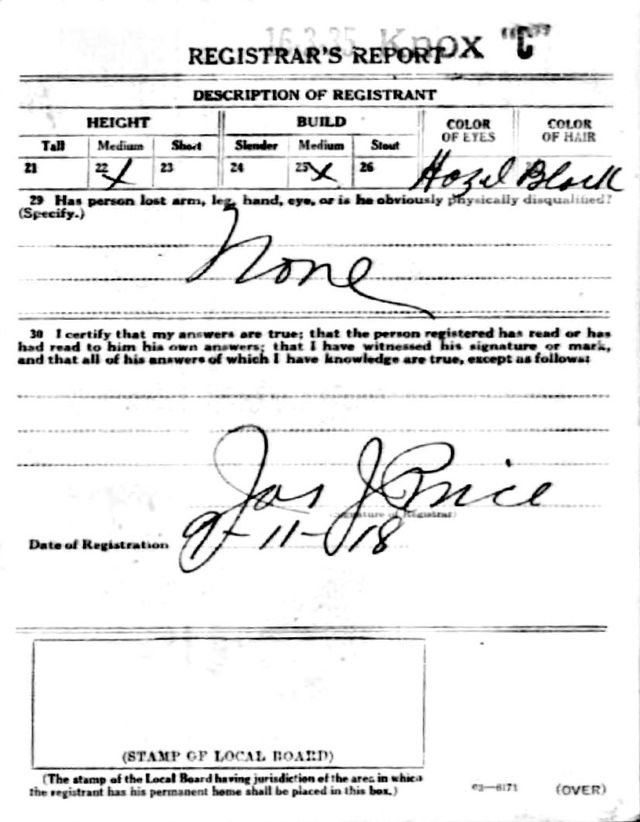 16.3.35 Knox "C"
REGISTRAR'S REPORT
DESCRIPTION OF REGISTRANT
HEIGHT BUILD COLOR OF EYES COLOR OF HAIR
Tall Medium Short Slender Medium Stout
21 22 X 23 24 25 X 26 Hazel Black
29 Has person lost arm, leg, hand, eye, or is he obviously physically disqualified?
(Specify.)
None
30 I certify that my answers are true; that the person registered has read or has
had read to him his own answers; that I have witnessed his signature or mark,
and that all of his answers of which I have knowledge are true, except as follows:
Jas J Price
(Signature of Registrar)
Date of Registration 9-11-18
(STAMP OF LOCAL BOARD)
(The stamp of the Local Board having jurisdiction of the area in which
the registrant has his permanent home shall be placed in this box.)
03—6171 (OVER)